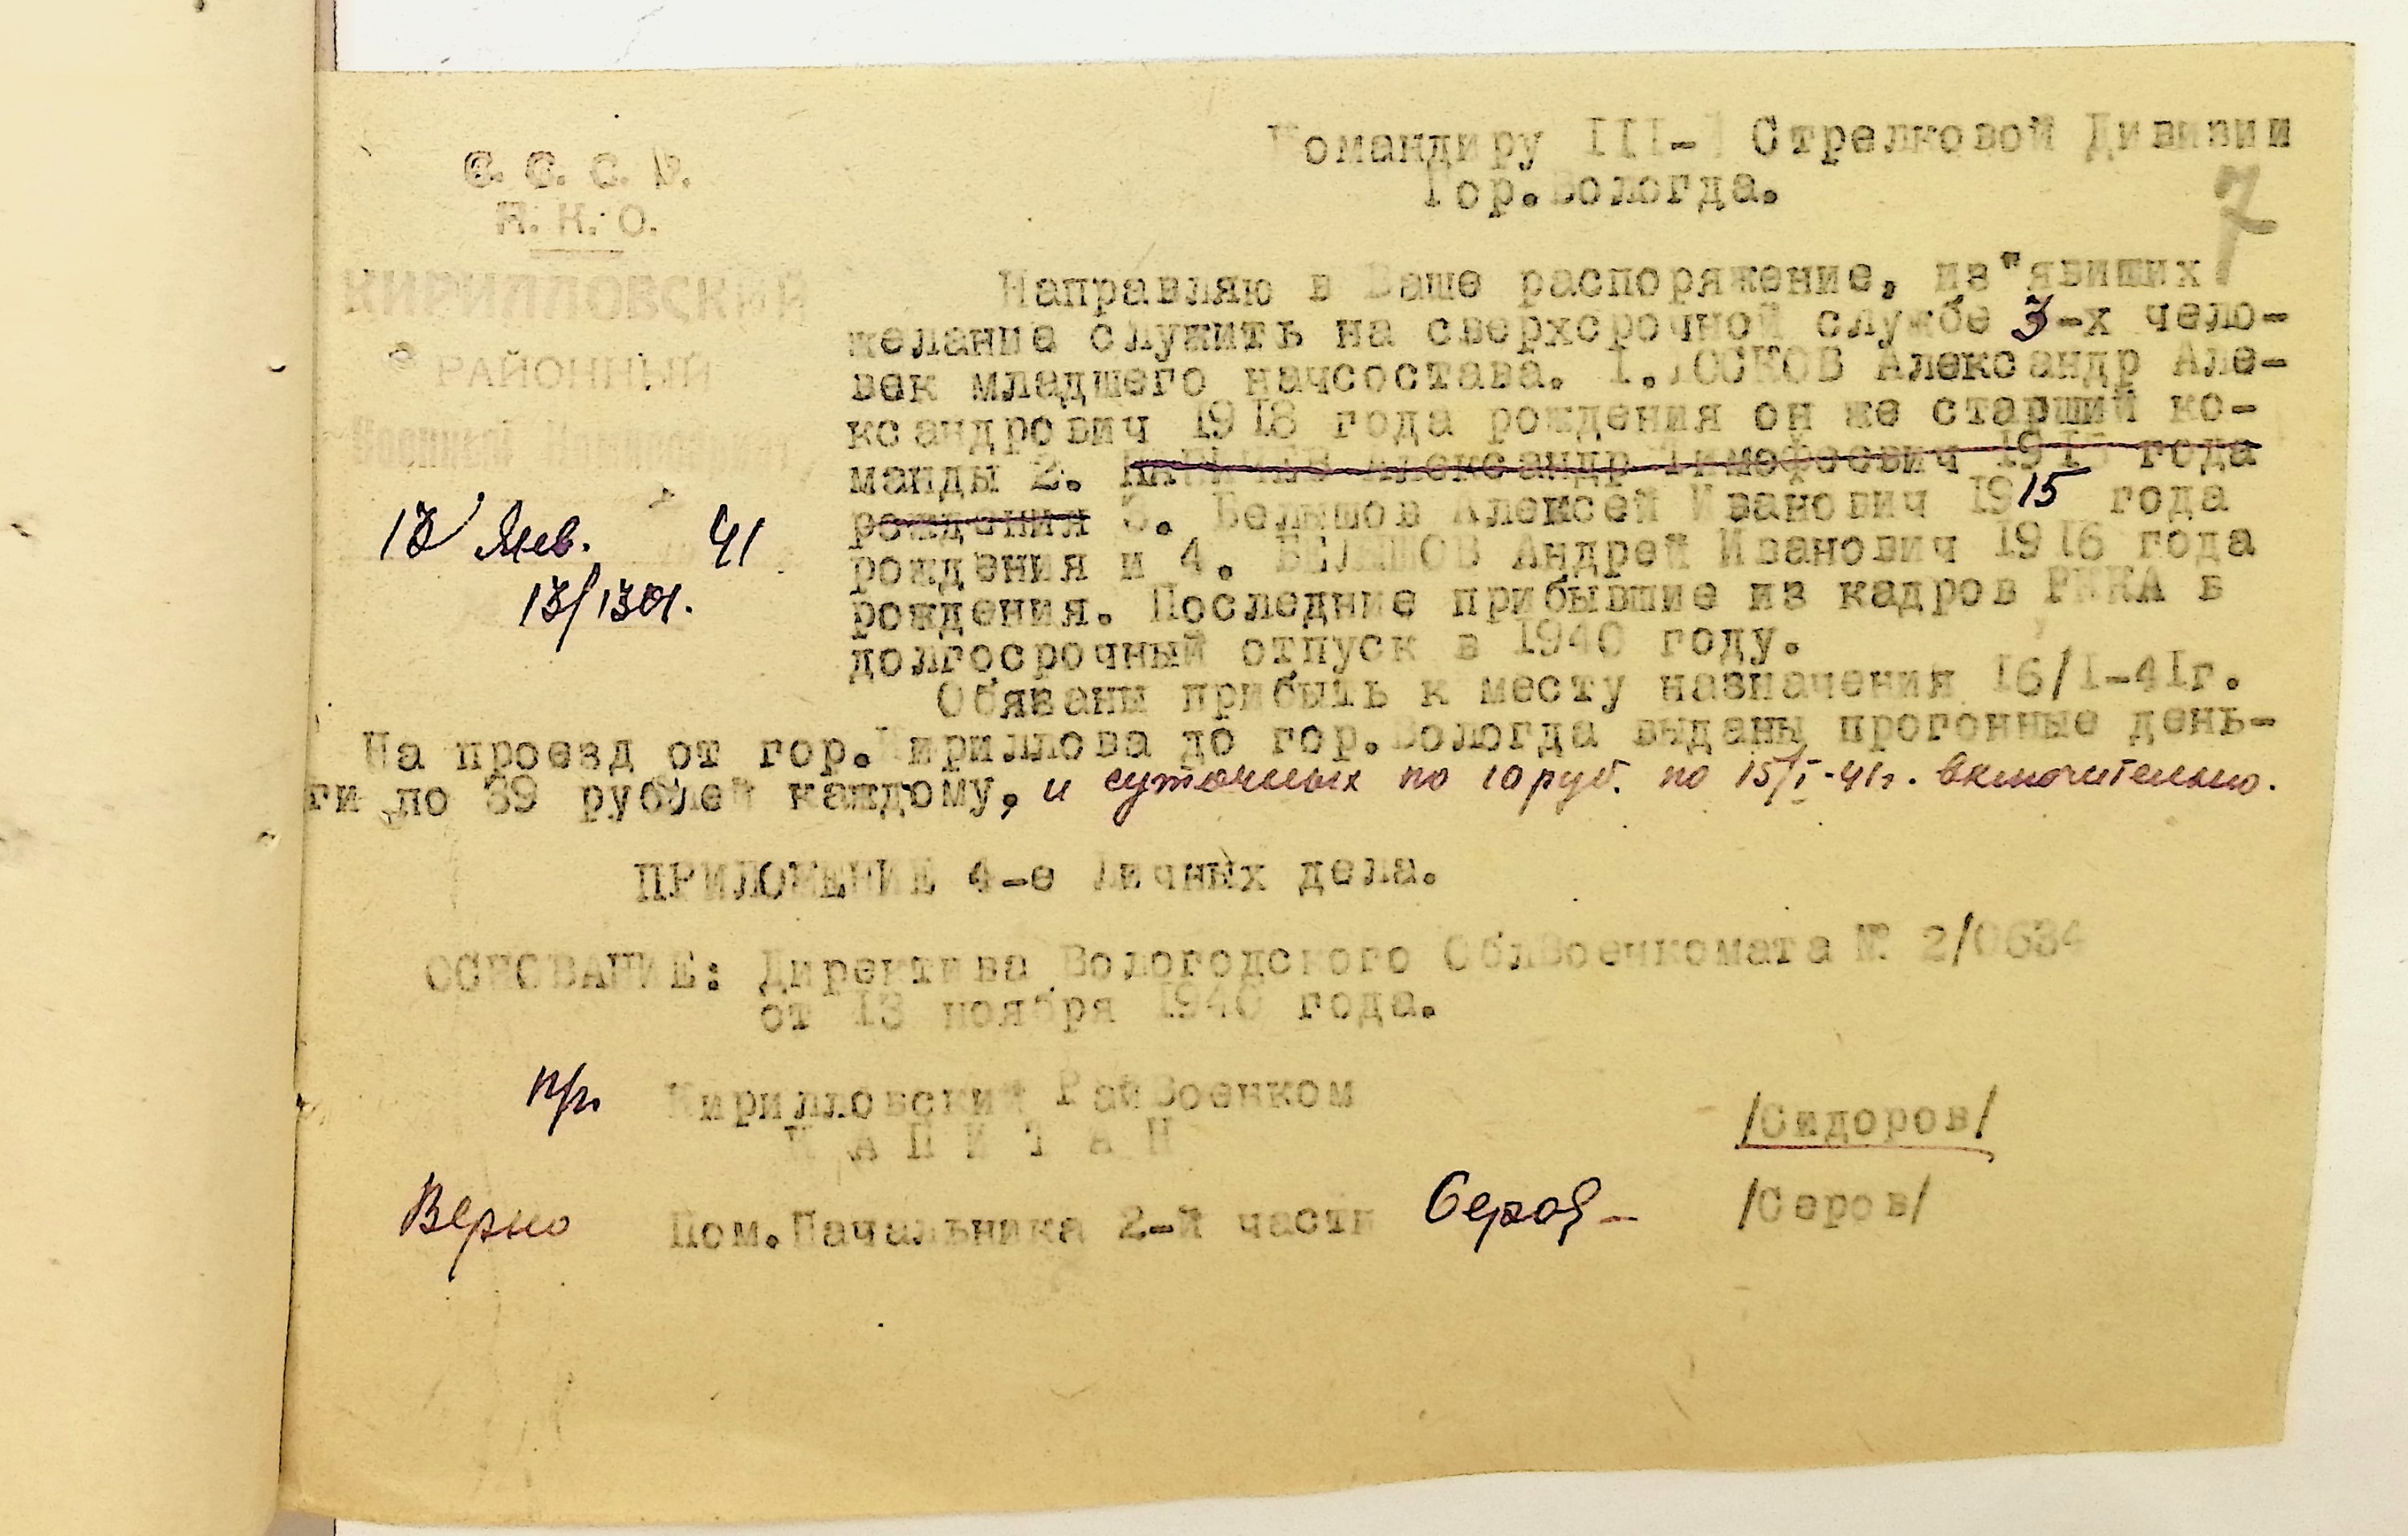 Командиру III-й Стрелковой Дивизии
Гор.Вологда.
7
С. С. С. Р.
Н. К. О.
КИРИЛЛОВСКИЙ
РАЙОННЫЙ
Военный
13 Янв. 41
13/1301.
Направляю в Ваше распоряжение, из"явиших
желание служить на сверхсрочной службе 3-х чело-
век младшего начсостава. I. Александр Але-
ксандрович 1918 года рождения он же старший ко-
манды 2. Александр Тимофеевич года
рождения 3. Белышов Алексей Иванович 1915 года
рождения и 4. БЕЛЫШОВ Андрей Иванович 1916 года
рождения. Последние прибывшие из кадров РККА в
долгосрочный отпуск в 1940 году.
Обязаны прибыть к месту назначения I6/I-4Iг.
На проезд от гор.Кириллова до гор.Вологда выданы прогонные день-
ги по 39 рублей каждому, и суточных по 10 руб. по 15/I-41г. включительно.
ПРИЛОЖЕНИЕ 4-е Личных дела.
ОСНОВАНИЕ: Директива Вологодского ОблВоенкомата № 2/0634
от I3 ноября 1940 года.
п/п. Кирилловский РайВоенком
К А П И Т А Н
/Сидоров/
Верно Пом.Начальника 2-й части Серов /Серов/